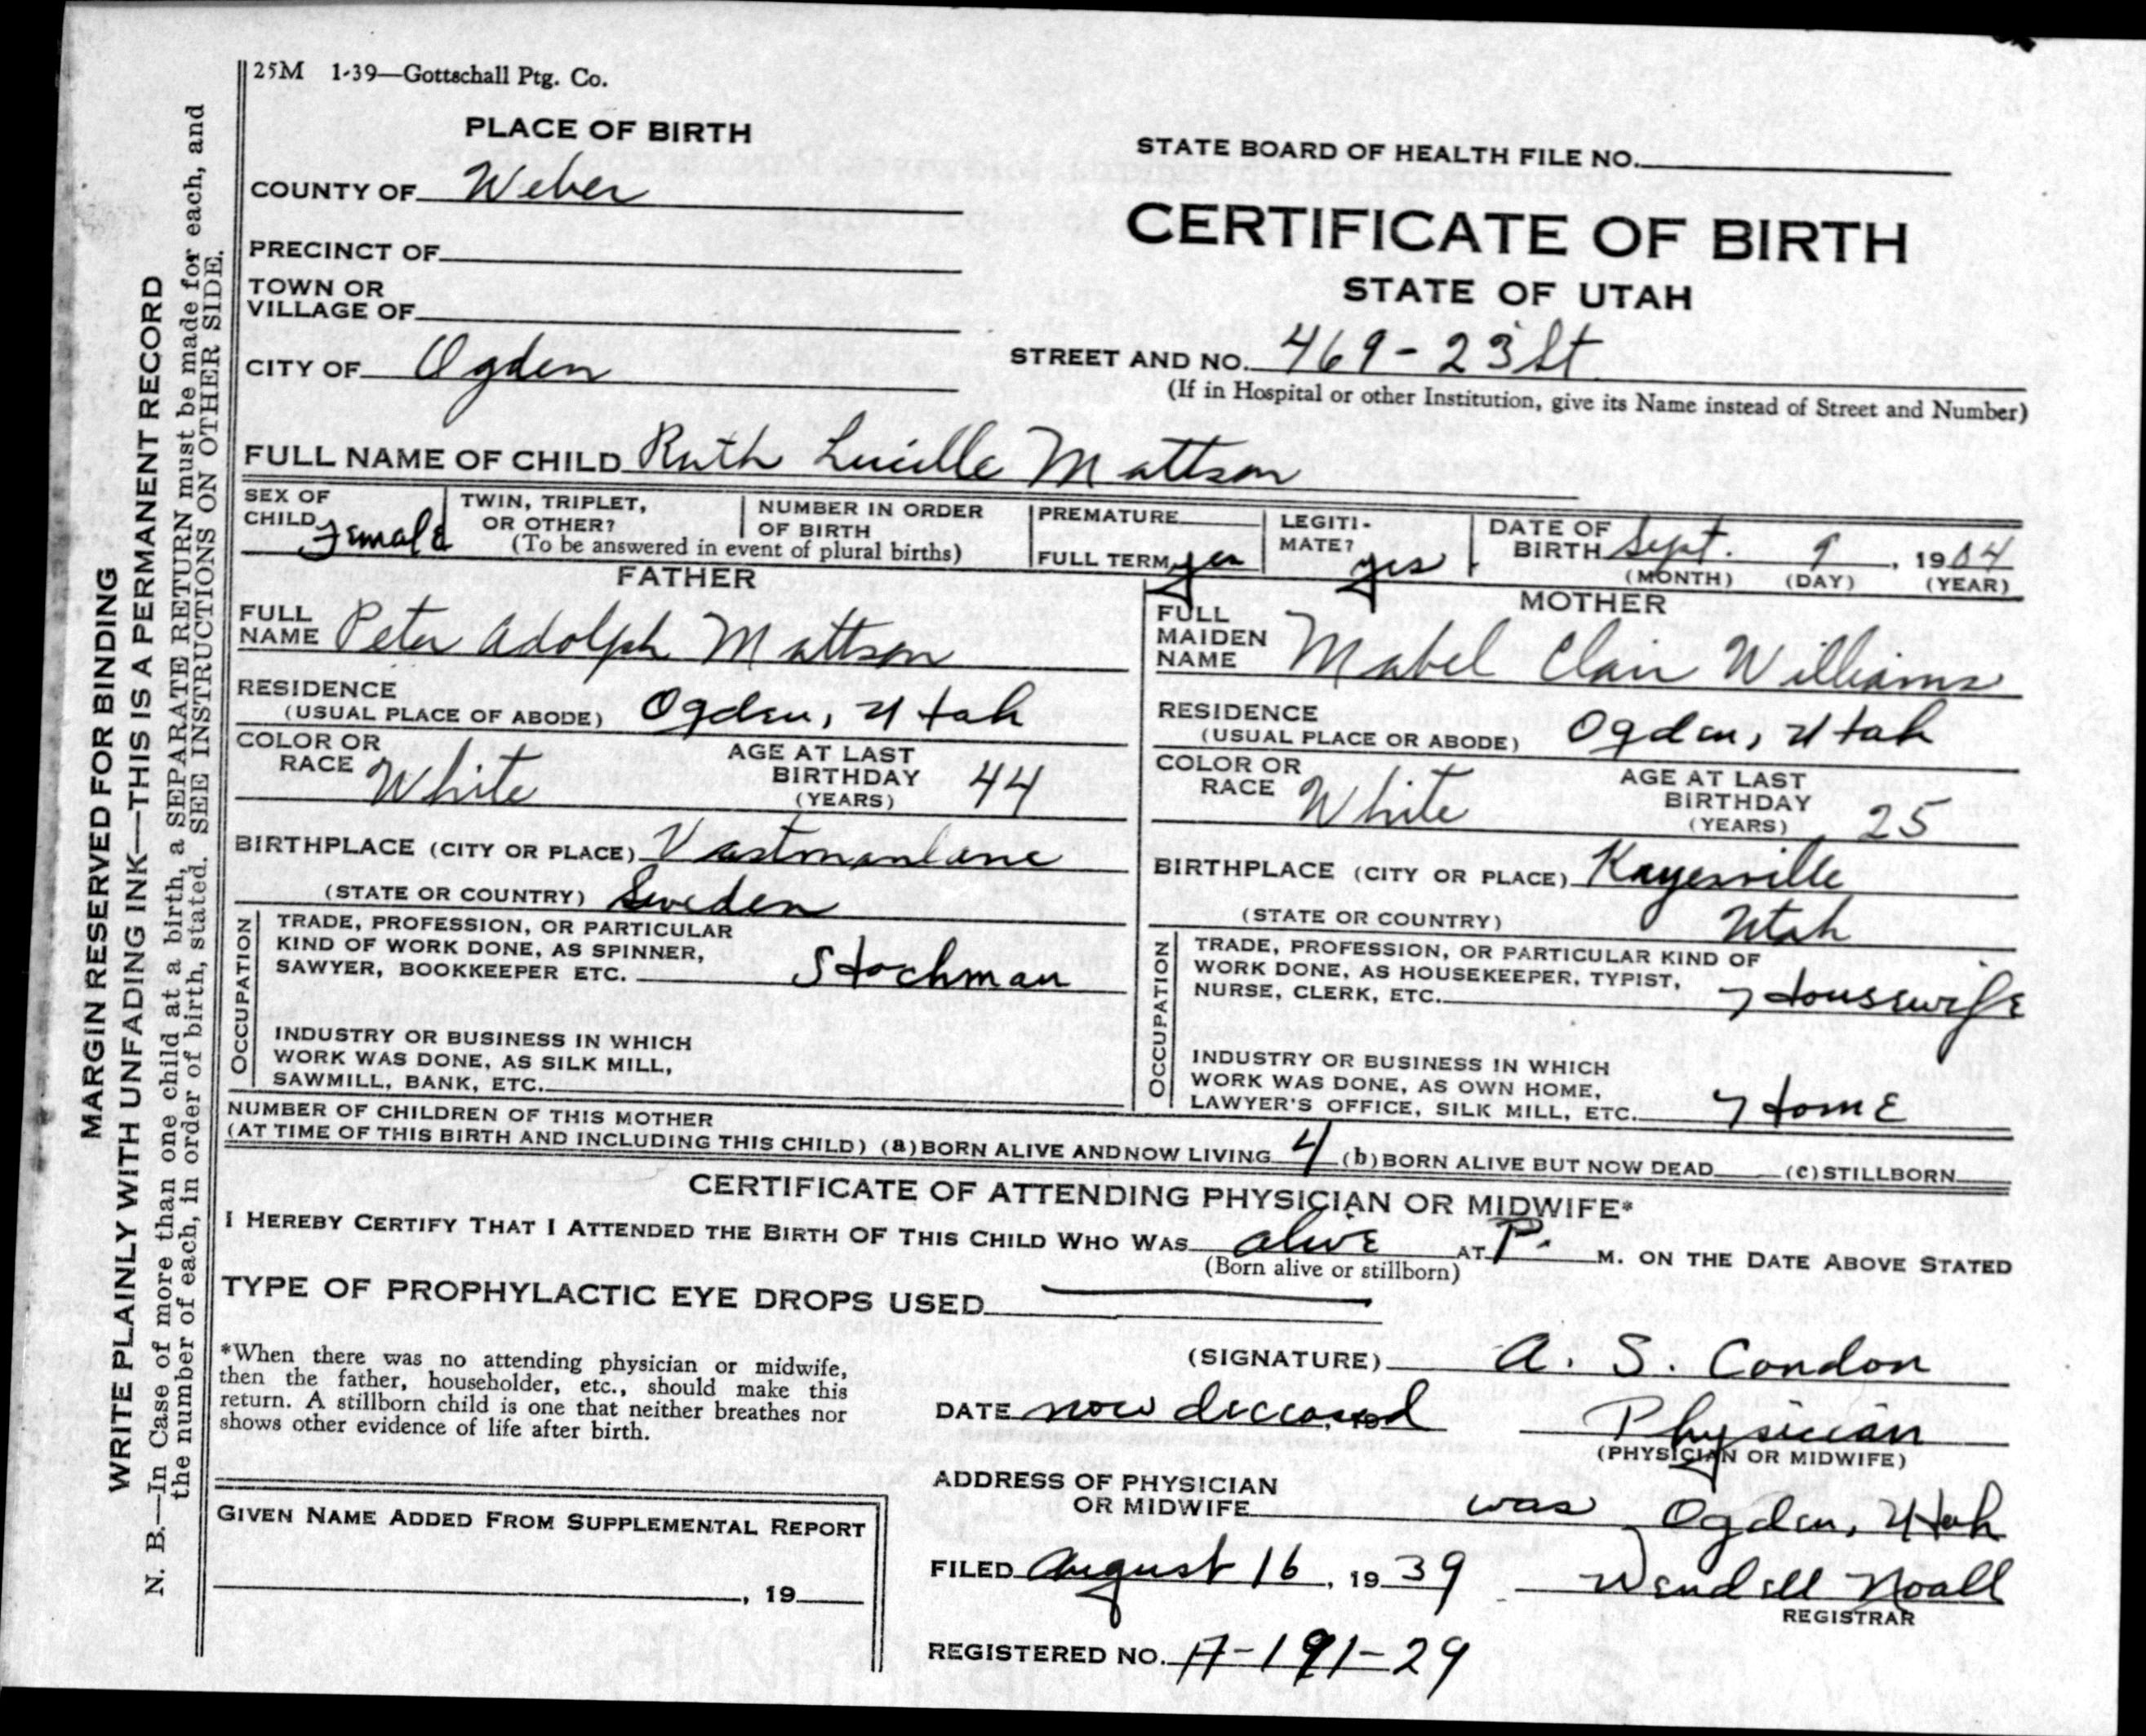 25M 1-39—Gottschall Ptg. Co.
PLACE OF BIRTH
STATE BOARD OF HEALTH FILE NO.
COUNTY OF Weber
CERTIFICATE OF BIRTH
PRECINCT OF
STATE OF UTAH
TOWN OR
VILLAGE OF
CITY OF Ogden
STREET AND NO. 469-23 St
(If in Hospital or other Institution, give its Name instead of Street and Number)
FULL NAME OF CHILD Ruth Lucille Mattson
SEX OF
CHILD Female
TWIN, TRIPLET,
OR OTHER?
NUMBER IN ORDER
OF BIRTH
(To be answered in event of plural births)
PREMATURE
FULL TERM yes
LEGITI-
MATE? yes
DATE OF
BIRTH Sept. 9, 1904
(MONTH) (DAY) (YEAR)
FATHER
FULL
NAME Peter Adolph Mattson
RESIDENCE
(USUAL PLACE OF ABODE) Ogden, Utah
COLOR OR
RACE White
AGE AT LAST
BIRTHDAY 44
(YEARS)
BIRTHPLACE (CITY OR PLACE) Vastmanlane
(STATE OR COUNTRY) Sweden
OCCUPATION
TRADE, PROFESSION, OR PARTICULAR
KIND OF WORK DONE, AS SPINNER,
SAWYER, BOOKKEEPER ETC. Stockman
INDUSTRY OR BUSINESS IN WHICH
WORK WAS DONE, AS SILK MILL,
SAWMILL, BANK, ETC.
MOTHER
FULL
MAIDEN
NAME Mabel Clair Williams
RESIDENCE
(USUAL PLACE OR ABODE) Ogden, Utah
COLOR OR
RACE White
AGE AT LAST
BIRTHDAY 25
(YEARS)
BIRTHPLACE (CITY OR PLACE) Kayesville
(STATE OR COUNTRY) Utah
OCCUPATION
TRADE, PROFESSION, OR PARTICULAR KIND OF
WORK DONE, AS HOUSEKEEPER, TYPIST,
NURSE, CLERK, ETC. Housewife
INDUSTRY OR BUSINESS IN WHICH
WORK WAS DONE, AS OWN HOME,
LAWYER'S OFFICE, SILK MILL, ETC. Home
NUMBER OF CHILDREN OF THIS MOTHER
(AT TIME OF THIS BIRTH AND INCLUDING THIS CHILD) (a) BORN ALIVE AND NOW LIVING 4 (b) BORN ALIVE BUT NOW DEAD (c) STILLBORN
CERTIFICATE OF ATTENDING PHYSICIAN OR MIDWIFE*
I HEREBY CERTIFY THAT I ATTENDED THE BIRTH OF THIS CHILD WHO WAS alive AT P. M. ON THE DATE ABOVE STATED
(Born alive or stillborn)
TYPE OF PROPHYLACTIC EYE DROPS USED
*When there was no attending physician or midwife,
then the father, householder, etc., should make this
return. A stillborn child is one that neither breathes nor
shows other evidence of life after birth.
(SIGNATURE) A. S. Condon
DATE now deceased, 19
Physician
(PHYSICIAN OR MIDWIFE)
ADDRESS OF PHYSICIAN
OR MIDWIFE was Ogden, Utah
GIVEN NAME ADDED FROM SUPPLEMENTAL REPORT
, 19
FILED August 16, 1939 Wendell Noall
REGISTRAR
REGISTERED NO. A-191-29
MARGIN RESERVED FOR BINDING
WRITE PLAINLY WITH UNFADING INK—THIS IS A PERMANENT RECORD
N. B.—In Case of more than one child at a birth, a SEPARATE RETURN must be made for each, and
the number of each, in order of birth, stated. SEE INSTRUCTIONS ON OTHER SIDE.